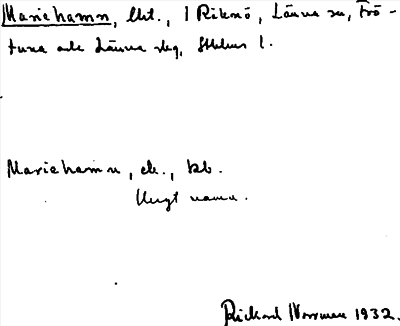 Mariehamn, lht., 1 Riksnö, Länna sn, Frö-
tuna och Länna slg, Sthlms l.
Mariehamn, ek., kb.
Ungt namn.
Rickard Norrman 1932.